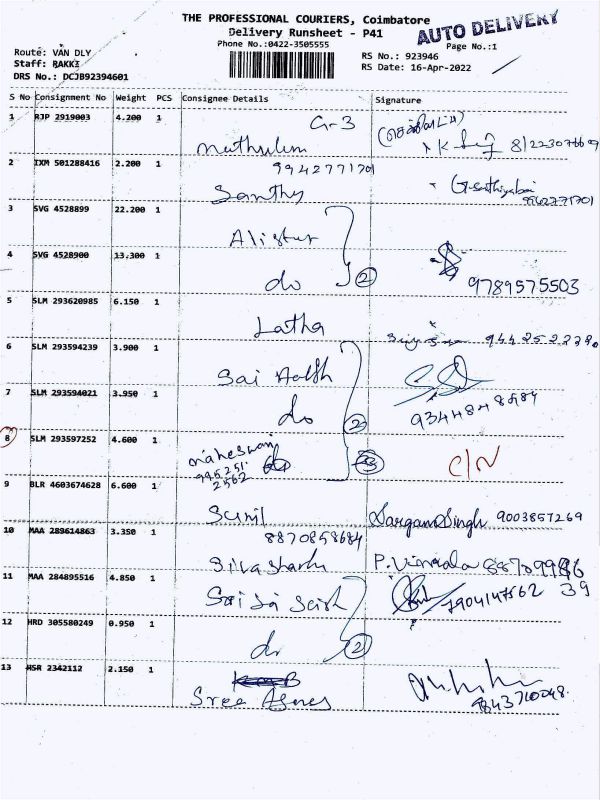 THE PROFESSIONAL COURIERS, Coimbatore
Delivery Runsheet - P41
AUTO DELIVERY
Phone No.:0422-3505555
Page No.:1
Route: VAN DLY
Staff: RAKKI
DRS No.: DCJB92394601
RS No.: 923946
RS Date: 16-Apr-2022
S No Consignment No Weight PCS Consignee Details Signature
1 RJP 2919003 4.200 1 G-3
Muthulim
2 IXM 501288416 2.200 1 9942771701
Santhy
3 SVG 4528899 22.200 1
Alistur
4 SVG 4528900 13.300 1
do 2 9789575503
5 SLM 293620985 6.150 1
Latha
6 SLM 293594239 3.900 1
Sai
7 SLM 293594021 3.950 1
do 2
8 SLM 293597252 4.600 1 Maheswari
995251
2562
C/N
9 BLR 4603674628 6.600 1
Sunil Sargam Singh 9003857269
10 MAA 289614863 3.350 1 8870858684
P. Vimala
11 MAA 284895516 4.850 1
Sri Sai 7904147562
39
12 HRD 305580249 0.950 1
do 2
13 HSR 2342112 2.150 1
Sree